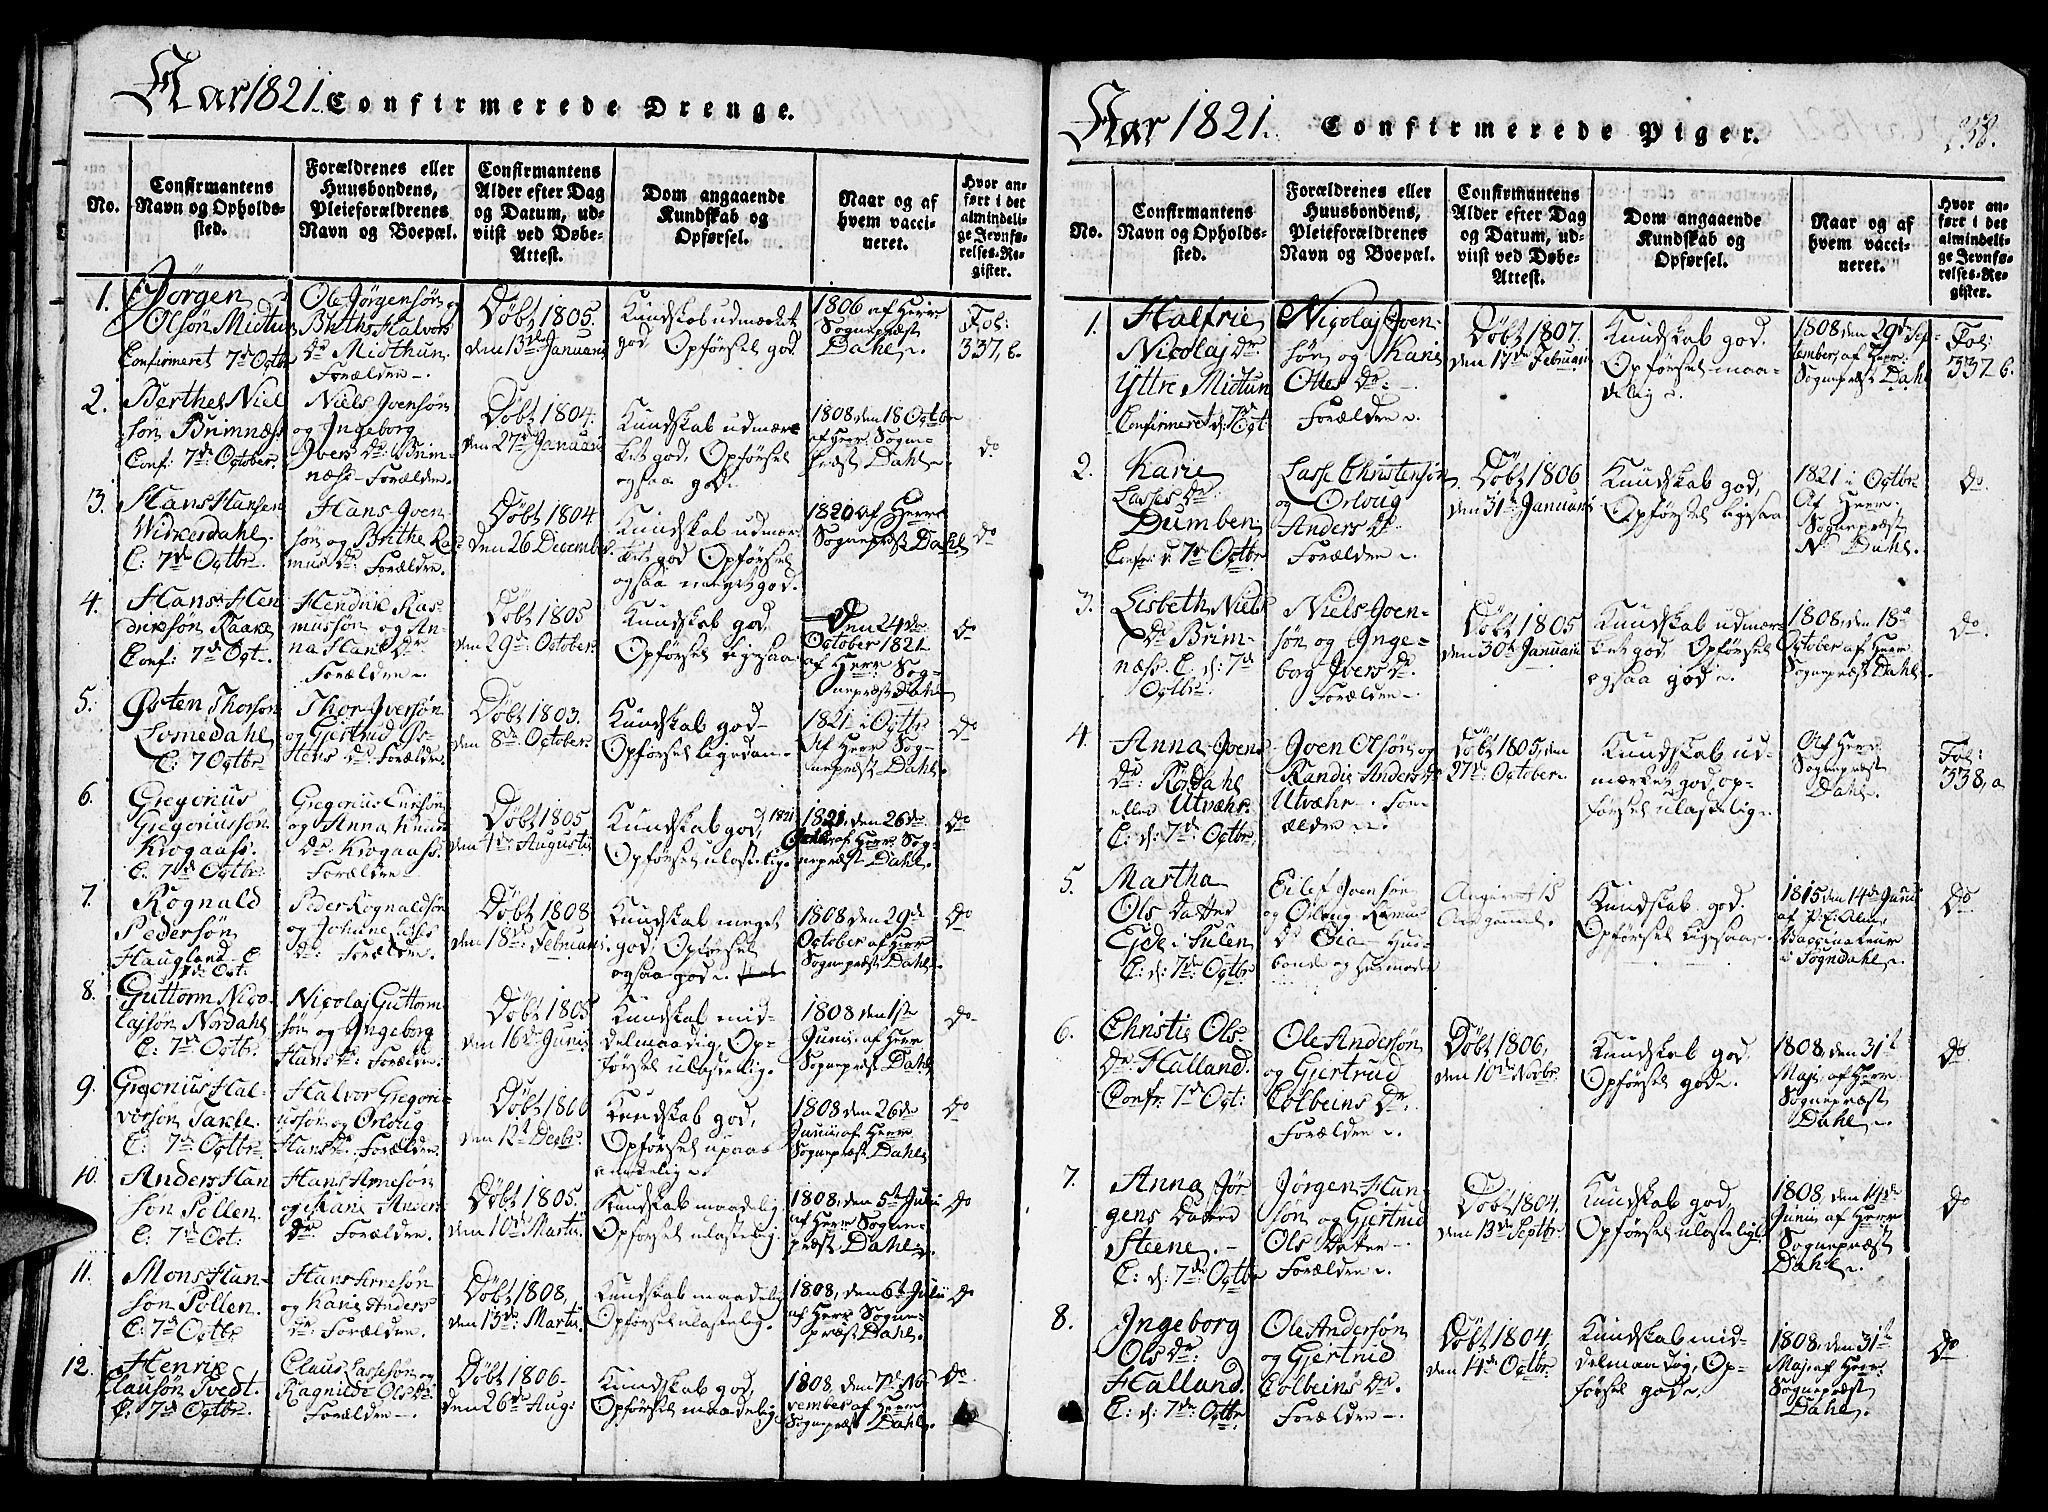 Aar 1821. Confirmerede Drenge.
No.
Confirmantens
Navn og Opholds-
sted.
Forældrenes eller
Huusbondens,
Pleieforældrenes
Navn og Boepæl.
Confirmantens
Alder efter Dag
og Datum, ud-
viist ved Døbe-
Attest.
Dom angaaende
Kundskab og
Opførsel.
Naar og af
hvem vacci-
neret.
Hvor an-
ført i det
almindeli-
ge Jevnfø-
relses-Re-
gister.
1.
Jörgen
Olsön Midtun
Confirmeret 7de Octbr
Ole Jörgensön og
Brithe Halvors
Dr Midthun
Forældre
Döbt 1805.
den 13de Januarii
Kundskab udmærket
god Opförsel god
1806 af Herr
Sognepræst
Dahl.
Fol:
337, b.
2.
Berthel Niel
sön Brimnæss
Conf: 7de October.
Niels Joensön
og Ingeborg
Ivers Dr: Brim-
næss Forældre.
Döbt 1804.
den 27de Januarii
Kundskab udmær-
ket god, Opförsel
ogsaa god.
1808 den 18 Octbr
af Herr Sogne-
præst Dahl.
do
3.
Hans Hansen
C: 7de Octbr.
Hans Joen-
sön og Brithe Ras-
mus dr: Forældre.
Döbt 1804
den 26 December
Kundskab udmær-
ket god Opförsel
ogsaa meget god.
1820 af Herr
Sognepræst Dahl
do
4.
Hans Hen
driksön Raake
Conf: 7de Oct.
Hendrik Ras-
mussön og An-
na Hans Dr
Forældre.
Döbt 1805
den 29de October
Kundskab god,
Opförsel ligesaa
Den 24de
October 1821
af Herr Sog-
nepræst Dahl
do
5.
Østen Thorsön
Lomedahl
C: 7 Octbr
Thor Iversön
og Gjertrud Ös-
tens dr: Forældre.
Döbt 1803.
den 8de October
Kundskab god
Opförsel ligedan
1821 i Octbr
Af Herr Sog-
nepræst Dahl.
do
6.
Gregorius
Gregoriussön
Krogaass.
C: 7de Octbr
og Anna Knuds
dr Krogaass.
Forældre
Döbt 1805
den 4de Augusti
Kundskab god,
Opförsel ulastelig.
1821, den 26de
af Herr Sog-
nepræst Dahl.
do
7.
Rognald
Pedersön
Haugland C
7de Oct:
Peder Rognaldsön
og Johanne Lasses
dr: Forældre.
Döbt 1808
den 18de Februarii
Kundskab meget
god, Opförsel
ogsaa god.
1808 den 29de
October af Herr
Sognepræst Dahl.
do
8.
Guttorm Nico-
lajsön Nordahl
C: 7de Octbr.
Nicolaj Guttorm-
sön og Ingeborg
Hans dr: Forældre.
Döbt 1805
den 16de Junii
Kundskab mid-
delmaadig, Op-
försel ulastelig.
1808 den 1ste
Junii af Herr
Sognepræst Dahl
do
9.
Gregorius Hal-
vorsön Takle.
C: 7de Octbr
Halvor Gregori-
ussön og Orloug
Hans dr. Forældre.
Döbt 1806
den 12te Decbr.
Kundskab god,
Opförsel upaa-
ankelig.
1808 den 26de
Junii af Herr
Sognepræst Dahl.
do
10.
Anders Han
sön Pollen.
C: 7de Oct:
Hans Arnesön
og Karie Anders
dr. Forældre.
Döbt 1805.
den 10de Martii.
Kundskab maadelig
Opförsel ulastelig.
1808, den 5te Julii
af Herr Sogne-
præst Dahl.
do
11.
Mons Han-
sön Pollen.
C: 7de Octbr.
Hans Arnesön
og Karie Anders
dr. Forældre.
Döbt 1808,
den 13de: Martii.
Kundskab maadelig
Opförsel ulastelig.
1808, den 6te Julii
af Herr Sogne-
præst Dahl.
do
12.
Henrik
Clausön Tvedt.
C: 7de Octbr.
Claus Lassesön og
Ragnilde Ols dr:
Forældre.
Döbt 1806.
den 26de Aug:
Kundskab god,
Opförsel maadelig
1808, den 7de No-
vember af Herr
Sognepræst Dahl.
do
Aar 1821. Confirmerede Piger.
258.
No.
Confirmantens
Navn og Opholds-
sted.
Forældrenes eller
Huusbondens,
Pleieforældrenes
Navn og Boepæl.
Confirmantens
Alder efter Dag
og Datum, ud-
viist ved Døbe-
Attest.
Dom angaaende
Kundskab og
Opførsel.
Naar og af
hvem vacci-
neret.
Hvor an-
ført i det
almindeli-
ge Jevnfø-
relses-Re-
gister.
1.
Halfrie
Nicolaj Dr
Yttre Midtun
Confirmeret d: 7de Oct
Nicolaj Joen-
sön og Karie
Ottes Dr:
Forældre.
Döbt 1807.
den 17de Februarii
Kundskab god.
Opförsel maa-
delig.
1808 den 29de Sep-
tember, af Herr
Sognepræst Dahl
Fol:
337 b.
2.
Karie
Lasses Dr:
Dumben
Confr d: 7de Octbr
Lasse Christensön
og Orloug
Anders Dr:
Forældre.
Döbt 1806
den 31te Januarii
Kundskab god,
Opförsel ligesaa
1821 i Octbr
Af Herr
Sognepræst
N. Dahl.
do.
3.
Lisbeth Niels
Dr Brim-
næss. C. d: 7de
Octbr.
Niels Joen-
sön og Inge-
borg Ivers dr.
Forældre.
Döbt 1805
den 30te Januarii
Kundskab udmær-
ket god Opförsel
ogsaa god.
1808, den 18de
October af Herr
Sognepræst Dahl.
do.
4.
Anna Joens
Dr: Rördahl
eller Utvæhr.
C: d: 7de: Octbr.
Joen Olsön og
Randie Anders dr
Utvæhr. For-
ældre.
Döbt 1805, den
27de October
Kundskab ud-
mærket god, op-
försel ulastelig.
Af Herr
Sognepræst
Dahl.
Fol:
338, a
5.
Martha
Ols Datter
Eide i Sulen
C: d: 7de: Octbr.
Eilef Joensön
og Rasmus
Dr Hus-
bonde og Husmoder
Angivet 15
Aar gammel.
Kundskab god.
Opförsel ligesaa.
1815 den 14de Junii
af
Vaccinateur
i Sogndahl.
do
6.
Christie Ols-
Dr: Halland.
Confr: 7de Oct:
Ole Andersön
og Gjertrud
Colbeins Dr.
Forældre.
Döbt 1806,
den 10de Novbr.
Kundskab god.
Opförsel god.
1808, den 31te
Maji af Herr
Sognepræst
Dahl.
do
7.
Anna Jör-
gens Datter
Steene.
C: d: 7de: Octbr
Jörgen Han-
sön og Gjertrud
Ols Datter
Forældre.
Döbt 1804.
den 13de Septbr.
Kundskab god,
Opförsel ulastelig.
1808 den 14de
Junii af Herr
Sognepræst
Dahl.
do
8.
Ingeborg
Ols Dr:
Halland.
C: d: 7de: Octbr
Ole Andersön
og Gjertrud
Colbeins Dr.
Forældre.
Döbt 1804,
den 14de Octbr.
Kundskab mid-
delmaadig, Op-
försel god.
1808, den 31te
Maji af Herr
Sognepræst
Dahl.
do